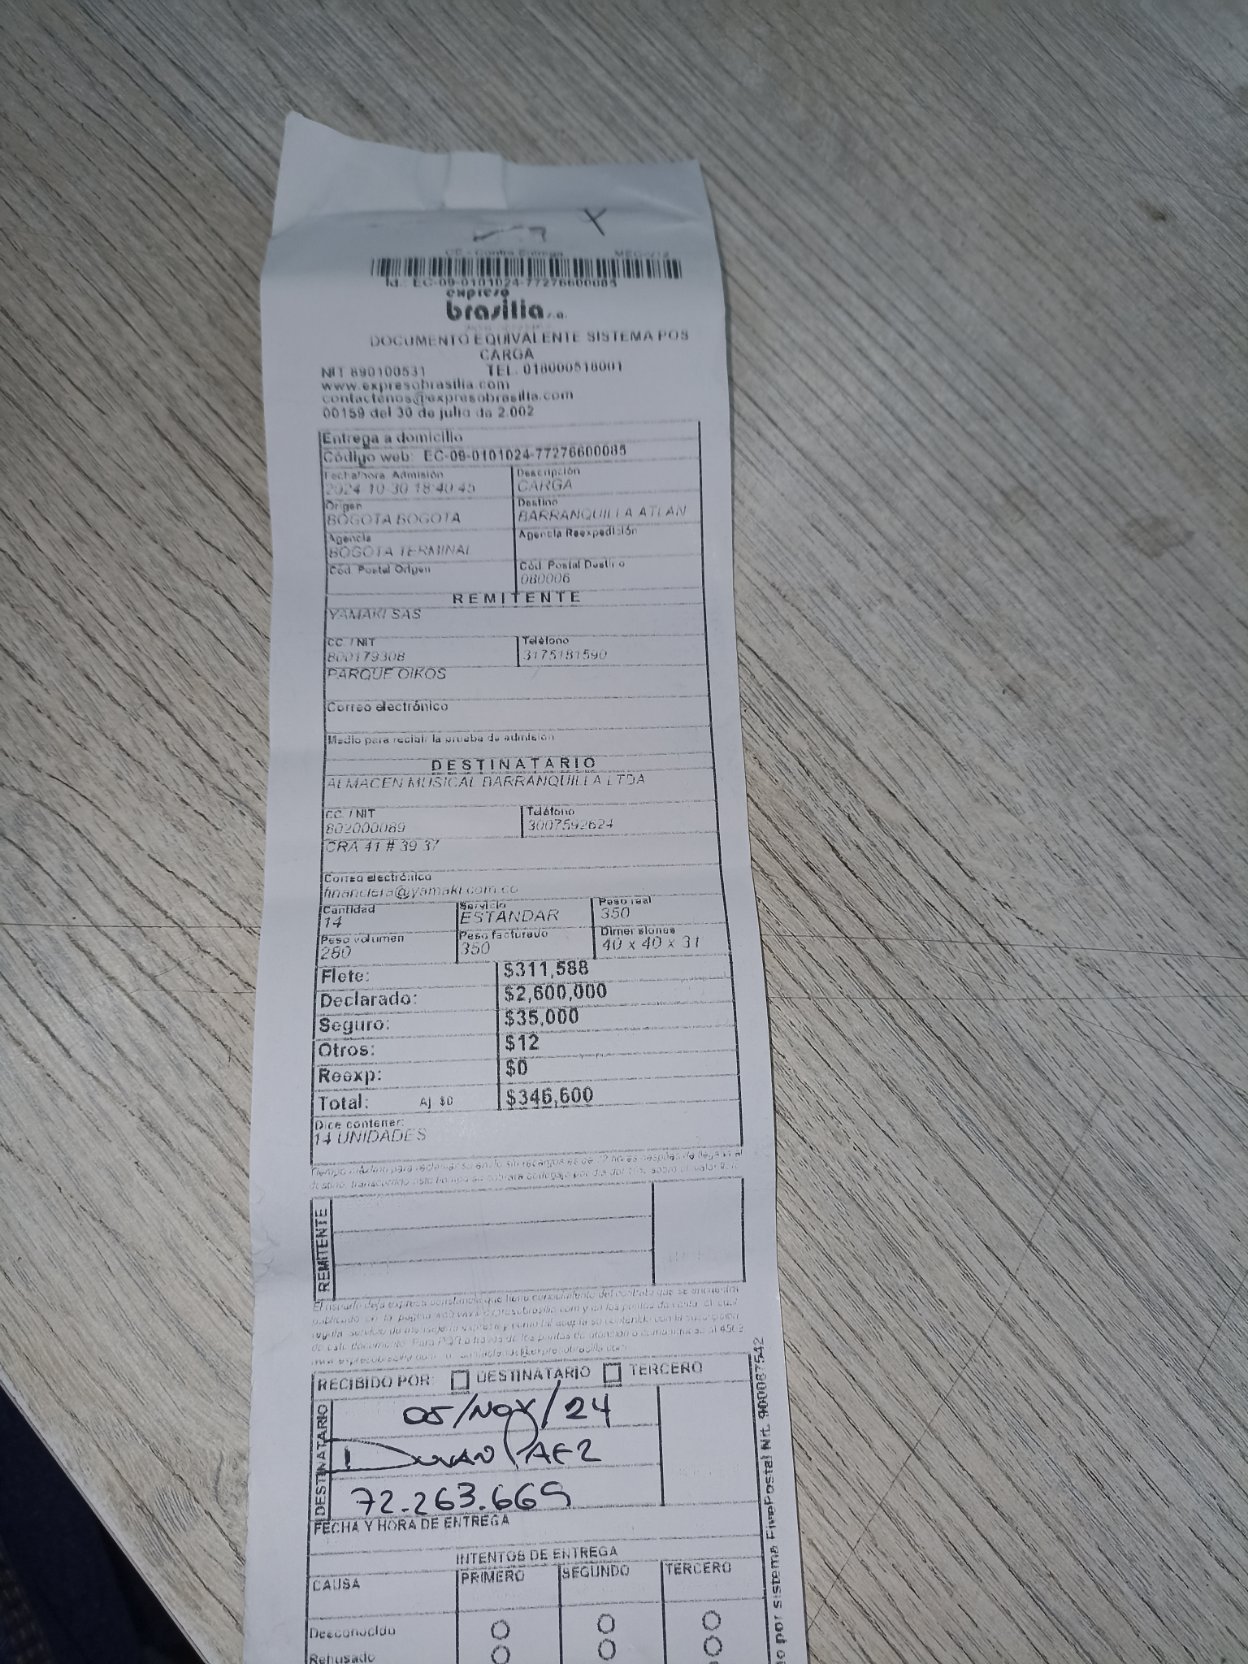 Y
CE - Contra Entrega
Id.: EC-09-0101024-77276600085
expreso
brasilia s.a.
DOCUMENTO EQUIVALENTE SISTEMA POS
CARGA
NIT 890100531 TEL. 018000518001
www.expresobrasilia.com
contactenos@expresobrasilia.com
00159 del 30 de julio de 2.002
Entrega a domicilio
Código web: EC-09-0101024-77276600085
Fecha/hora Admisión Descripción
2024-10-30 18:40:45 CARGA
Origen Destino
BOGOTA BOGOTA BARRANQUILLA ATLAN
Agencia Agencia Reexpedición
BOGOTA TERMINAL
Cód. Postal Origen Cód. Postal Destino
080006
REMITENTE
YAMAKI SAS
CC. / NIT Teléfono
800179308 3175181590
PARQUE OIKOS
Correo electrónico
Medio para recibir la prueba de admisión
DESTINATARIO
ALMACEN MUSICAL BARRANQUILLA LTDA
CC. / NIT Teléfono
802000089 3007592624
CRA 41 # 39 37
Correo electrónico
financiera@yamaki.com.co
Cantidad Servicio Peso real
14 ESTANDAR 350
Peso volumen Peso facturado Dimensiones
280 350 40 x 40 x 31
Flete: $311,588
Declarado: $2,600,000
Seguro: $35,000
Otros: $12
Reexp: $0
Total: Aj $0 $346,600
Dice contener:
14 UNIDADES
REMITENTE
RECIBIDO POR: DESTINATARIO TERCERO
DESTINATARIO
05/Nov/24
Duvan Paez
72.263.669
FECHA Y HORA DE ENTREGA
INTENTOS DE ENTREGA
CAUSA PRIMERO SEGUNDO TERCERO
Desconocido
Rehusado
o por sistema FivePostal Nit. 900087542